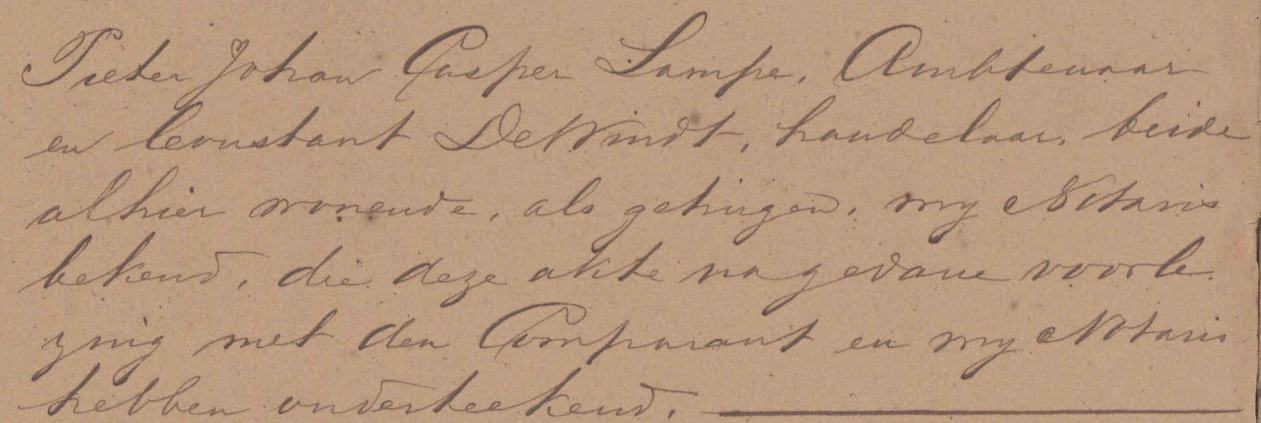 Pieter Johan Casper Lampe, Ambtenaar
en Constant DeWindt, handelaar, beide
alhier wonende, als getuigen, my Notaris
bekend, die deze akte na gedane voorle
zing met den Comparant en my Notaris
hebben onderteekend.